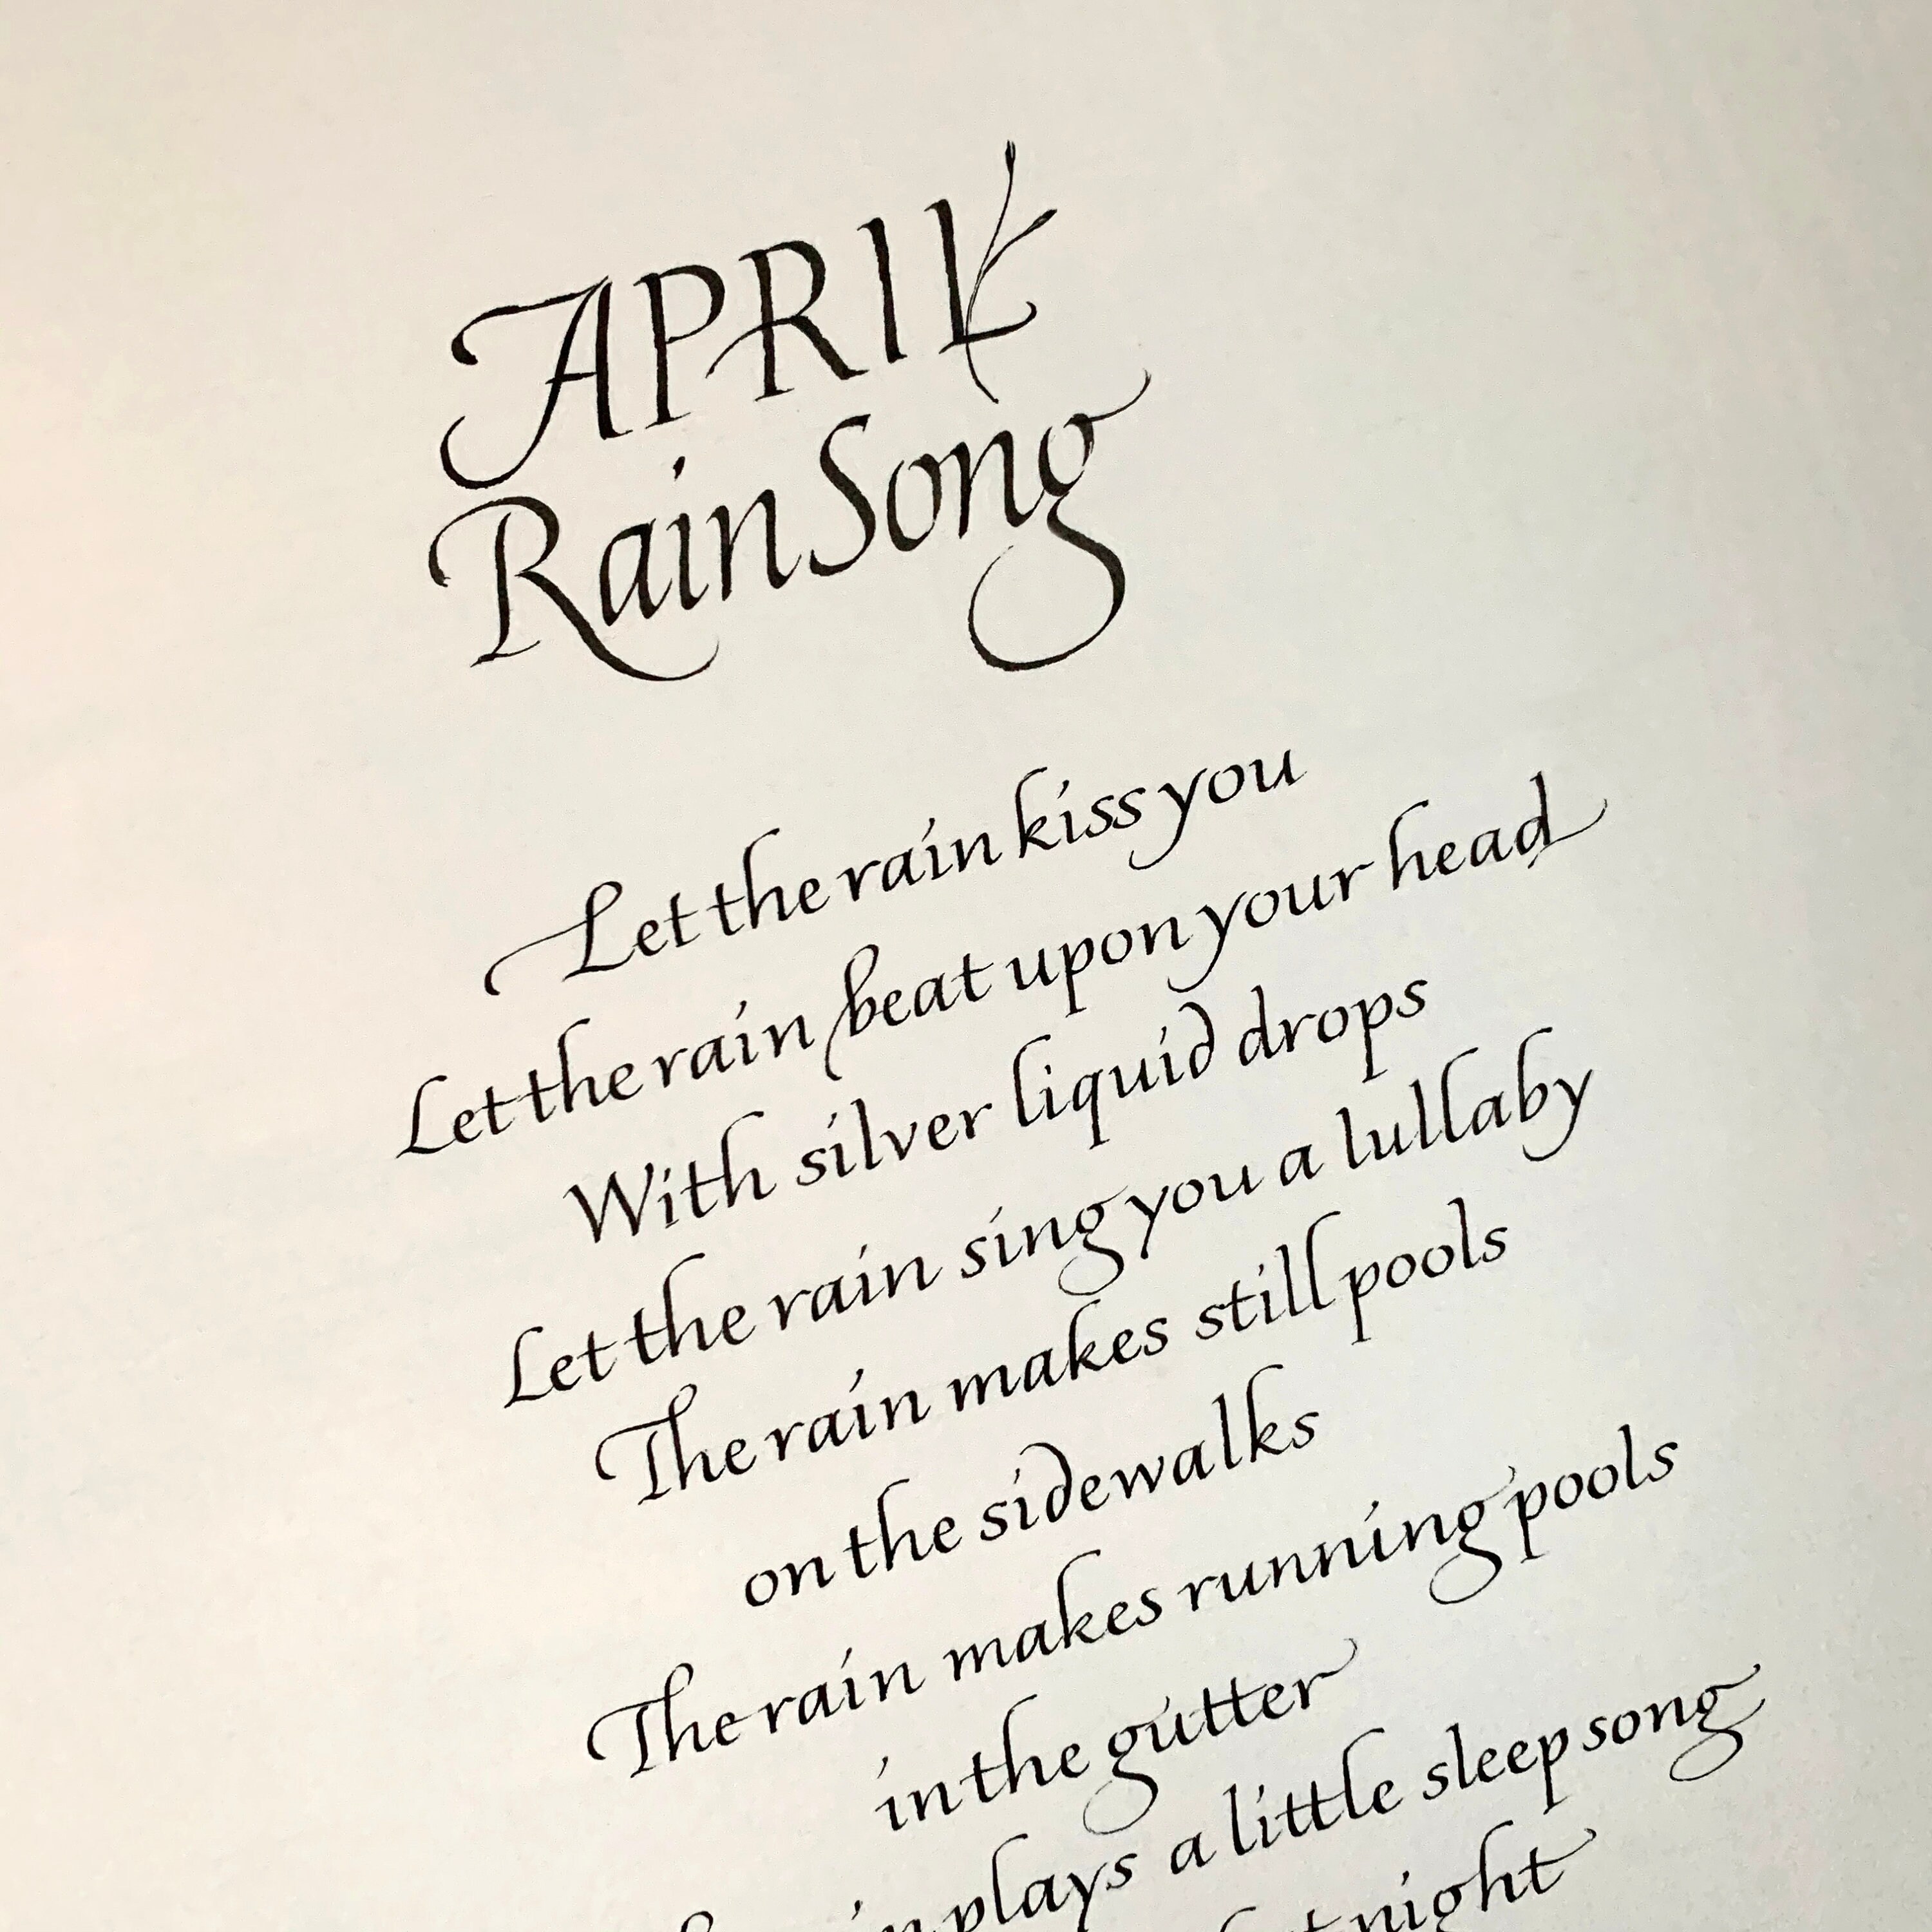 APRIL
Rain Song
Let the rain kiss you
Let the rain beat upon your head
With silver liquid drops
Let the rain sing you a lullaby
The rain makes still pools
on the sidewalks
The rain makes running pools
in the gutter
plays a little sleep song
night